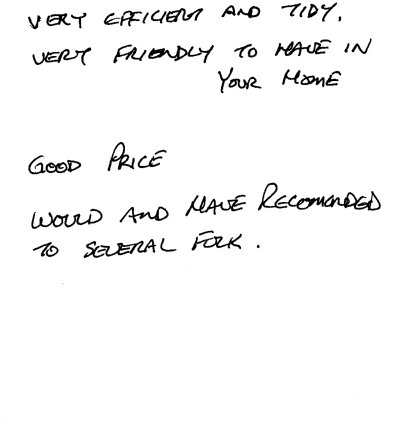 VERY EFFICIENT AND TIDY.
VERY FRIENDLY TO HAVE IN
YOUR HOME
GOOD PRICE
WOULD AND HAVE RECOMONDED
TO SEVERAL FOLK.